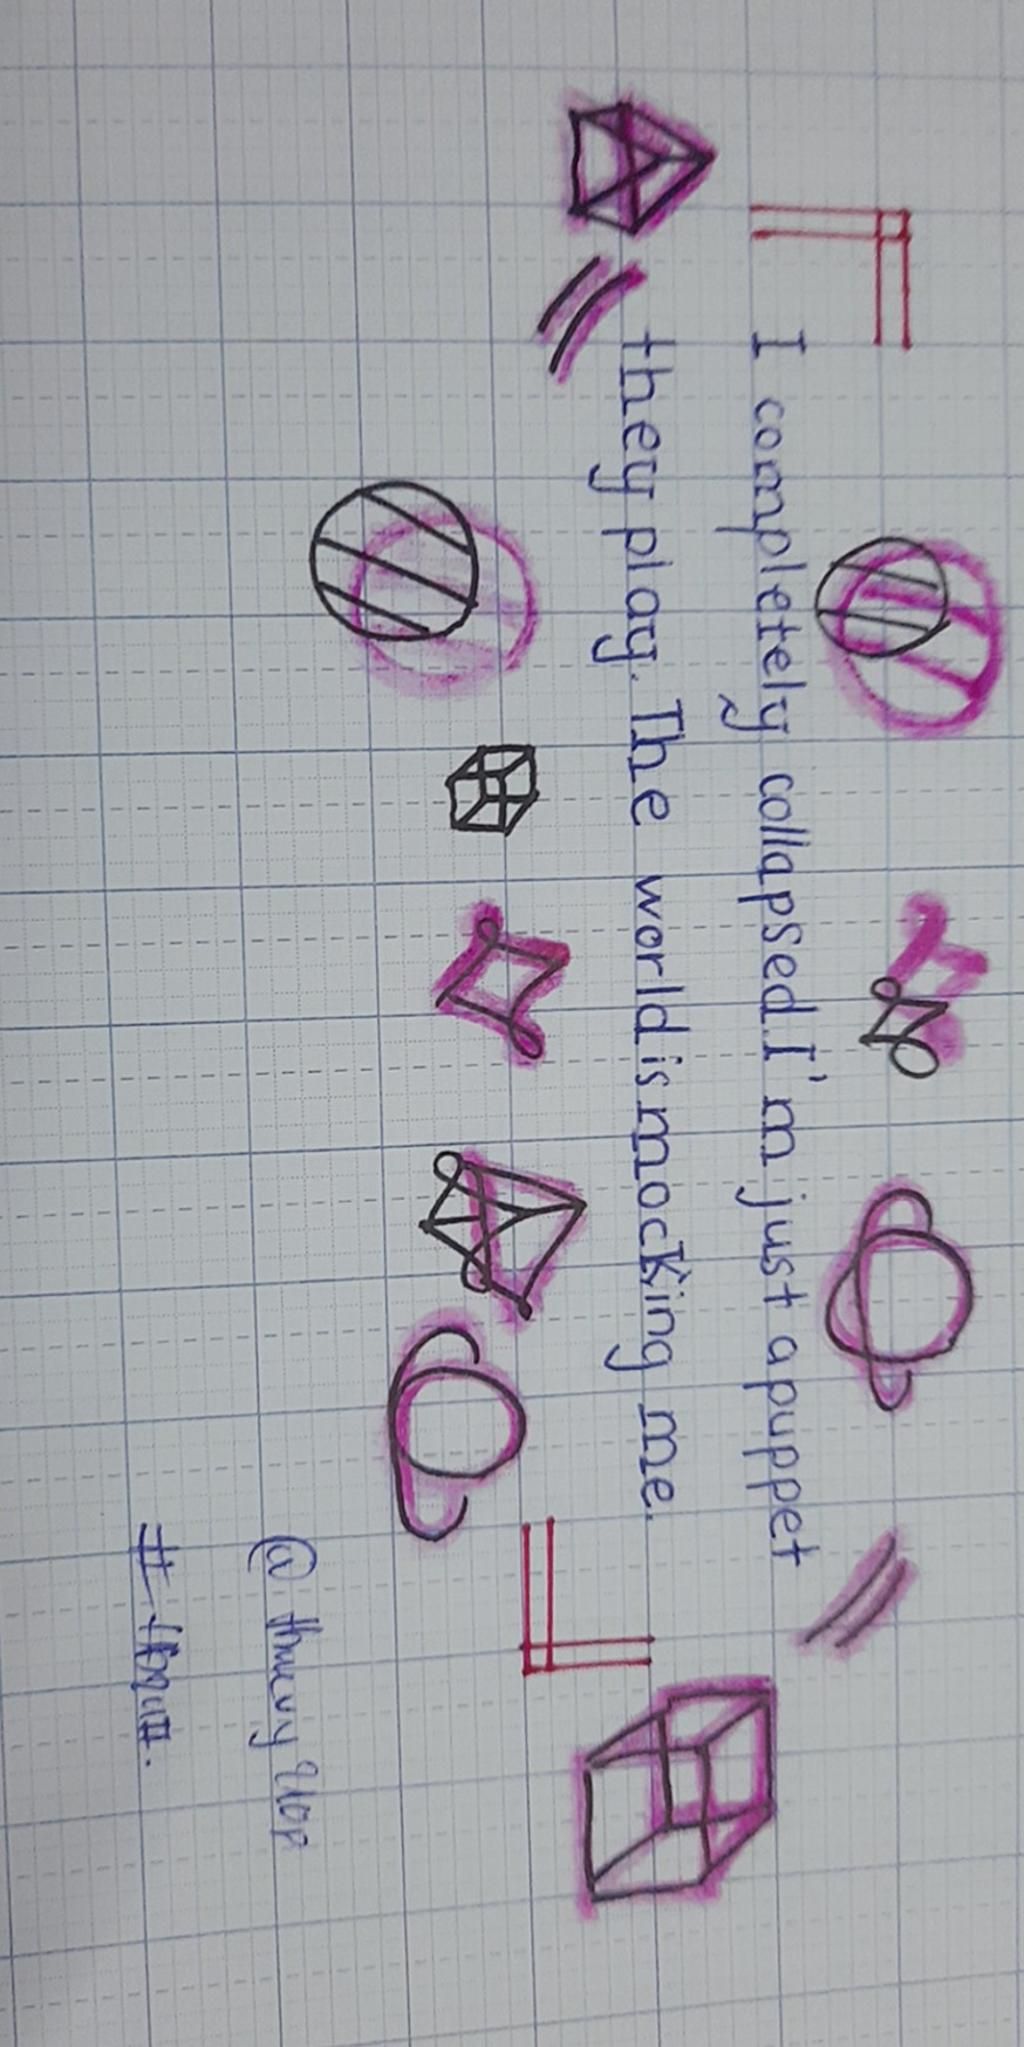 I completely collapsed. I'm just a puppet
they play. The world is mocking me.